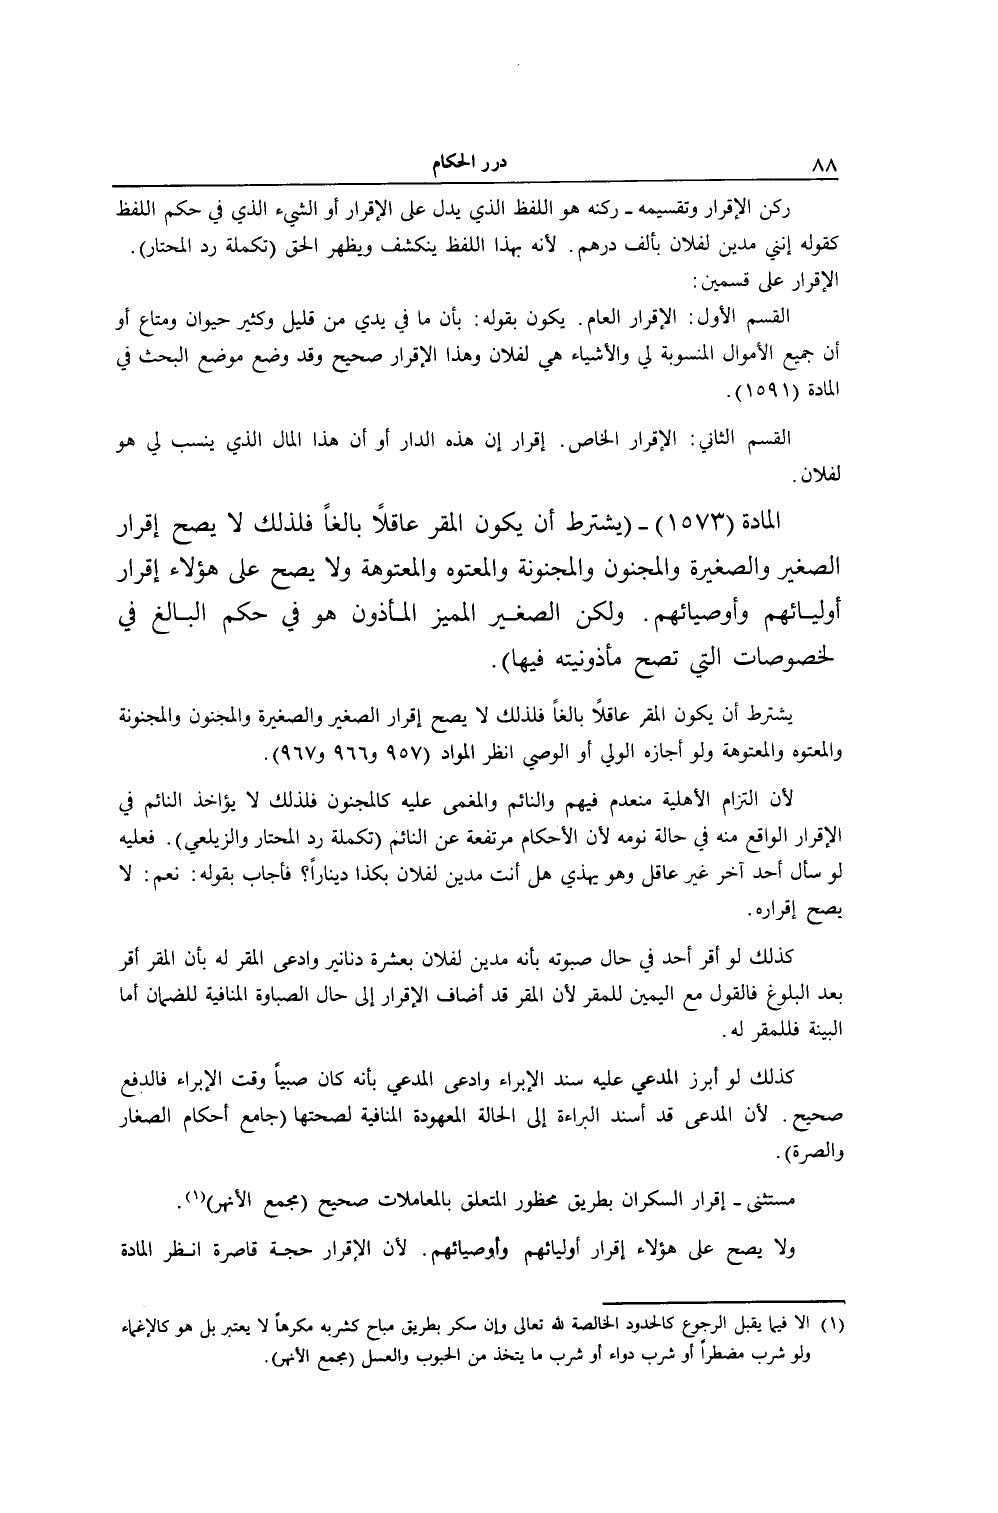 ٨٨
درر الحكام
ركن الإقرار وتقسيمه ـ ركنه هو اللفظ الذي يدل على الإقرار أو الشيء الذي في حكم اللفظ
كقوله إنني مدين لفلان بألف درهم. لأنه بهذا اللفظ ينكشف ويظهر الحق (تكملة رد المحتار).
الإقرار على قسمين:
القسم الأول: الإقرار العام. يكون بقوله: بأن ما في يدي من قليل وكثير حيوان ومتاع أو
أن جميع الأموال المنسوبة لي والأشياء هي لفلان وهذا الإقرار صحيح وقد وضع موضع البحث في
المادة (١٥٩١).
القسم الثاني: الإقرار الخاص. إقرار إن هذه الدار أو أن هذا المال الذي ينسب لي هو
لفلان.
المادة (١٥٧٣) ـ (يشترط أن يكون المقر عاقلاً بالغاً فلذلك لا يصح إقرار
الصغير والصغيرة والمجنون والمجنونة والمعتوه والمعتوهة ولا يصح على هؤلاء إقرار
أوليـائهم وأوصيائهم. ولكن الصغـير المميز المـأذون هو في حكم البـالغ في
لخصوصات التي تصح مأذونيته فيها).
يشترط أن يكون المقر عاقلاً بالغاً فلذلك لا يصح إقرار الصغير والصغيرة والمجنون والمجنونة
والمعتوه والمعتوهة ولو أجازه الولي أو الوصي انظر المواد (٩٥٧ و٩٦٦ و٩٦٧).
لأن التزام الأهلية منعدم فيهم والنائم والمغمى عليه كالمجنون فلذلك لا يؤاخذ النائم في
الإقرار الواقع منه في حالة نومه لأن الأحكام مرتفعة عن النائم (تكملة رد المحتار والزيلعي). فعليه
لو سأل أحد آخر غير عاقل وهو يهذي هل أنت مدين لفلان بكذا ديناراً؟ فأجاب بقوله: نعم: لا
يصح إقراره.
كذلك لو أقر أحد في حال صبوته بأنه مدين لفلان بعشرة دنانير وادعى المقر له بأن المقر أقر
بعد البلوغ فالقول مع اليمين للمقر لأن المقر قد أضاف الإقرار إلى حال الصباوة المنافية للضمان أما
البينة فللمقر له.
كذلك لو أبرز المدعي عليه سند الإبراء وادعى المدعي بأنه كان صبياً وقت الإبراء فالدفع
صحيح. لأن المدعى قد أسند البراءة إلى الحالة المعهودة المنافية لصحتها (جامع أحكام الصغار
والصرة).
مستثنى ـ إقرار السكران بطريق محظور المتعلق بالمعاملات صحيح (مجمع الأنهر)(١).
ولا يصح على هؤلاء إقرار أوليائهم وأوصيائهم. لأن الإقرار حجـة قاصرة انـظر المادة
(١) الا فيما يقبل الرجوع كالحدود الخالصة لله تعالى وإن سكر بطريق مباح كشربه مكرهاً لا يعتبر بل هو كالإغماء
ولو شرب مضطراً أو شرب دواء أو شرب ما يتخذ من الحبوب والعسل (مجمع الأنهر).